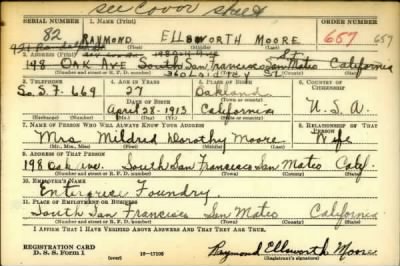 see Cover sheet
SERIAL NUMBER 1. NAME (Print) ORDER NUMBER
82 RAYMOND ELLSWORTH MOORE 657 657
(First) (Middle) (Last)
198 OAK AVE South San Francisco San Mateo California
(Number and street or R. F. D. number) (Town) (County) (State)
3. TELEPHONE 4. AGE IN YEARS 5. PLACE OF BIRTH 6. COUNTRY OF CITIZENSHIP
So. S. F. 669 27 Oakland
DATE OF BIRTH (Town or county)
April 28 - 1913 California U.S.A.
(Exchange) (Number) (Mo.) (Day) (Yr.) (State or country)
7. NAME OF PERSON WHO WILL ALWAYS KNOW YOUR ADDRESS 8. RELATIONSHIP OF THAT PERSON
Mrs. Mildred Dorothy Moore Wife
(Mr., Mrs., Miss) (First) (Middle) (Last)
9. ADDRESS OF THAT PERSON
198 Oak Ave. South San Francisco San Mateo Calif.
(Number and street or R. F. D. number) (Town) (County) (State)
10. EMPLOYER'S NAME
Enterprise Foundry
11. PLACE OF EMPLOYMENT OR BUSINESS
South San Francisco San Mateo California
(Number and street or R. F. D. number) (Town) (County) (State)
I AFFIRM THAT I HAVE VERIFIED ABOVE ANSWERS AND THAT THEY ARE TRUE.
REGISTRATION CARD
D. S. S. Form 1 (over) 16-17105 Raymond Ellsworth Moore
(Registrant's signature)